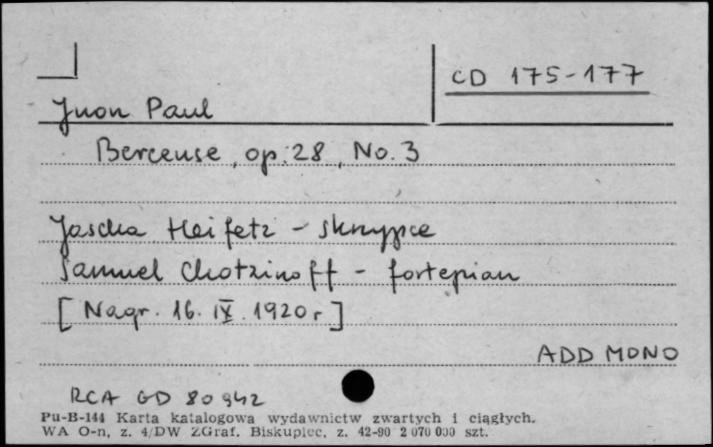 CD 175-177
Juon Paul
Berceuse, op. 28, No. 3
Jascha Heifetz - skrzypce
Samuel Chotzinoff - fortepian
[Nagr. 16. IX. 1920 r]
ADD MONO
RCA GD 80942
Pu-B-144 Karta katalogowa wydawnictw zwartych i ciągłych.
WA O-n, z. 4/DW ZGraf. Biskupiec, z. 42-90 2 070 000 szt.